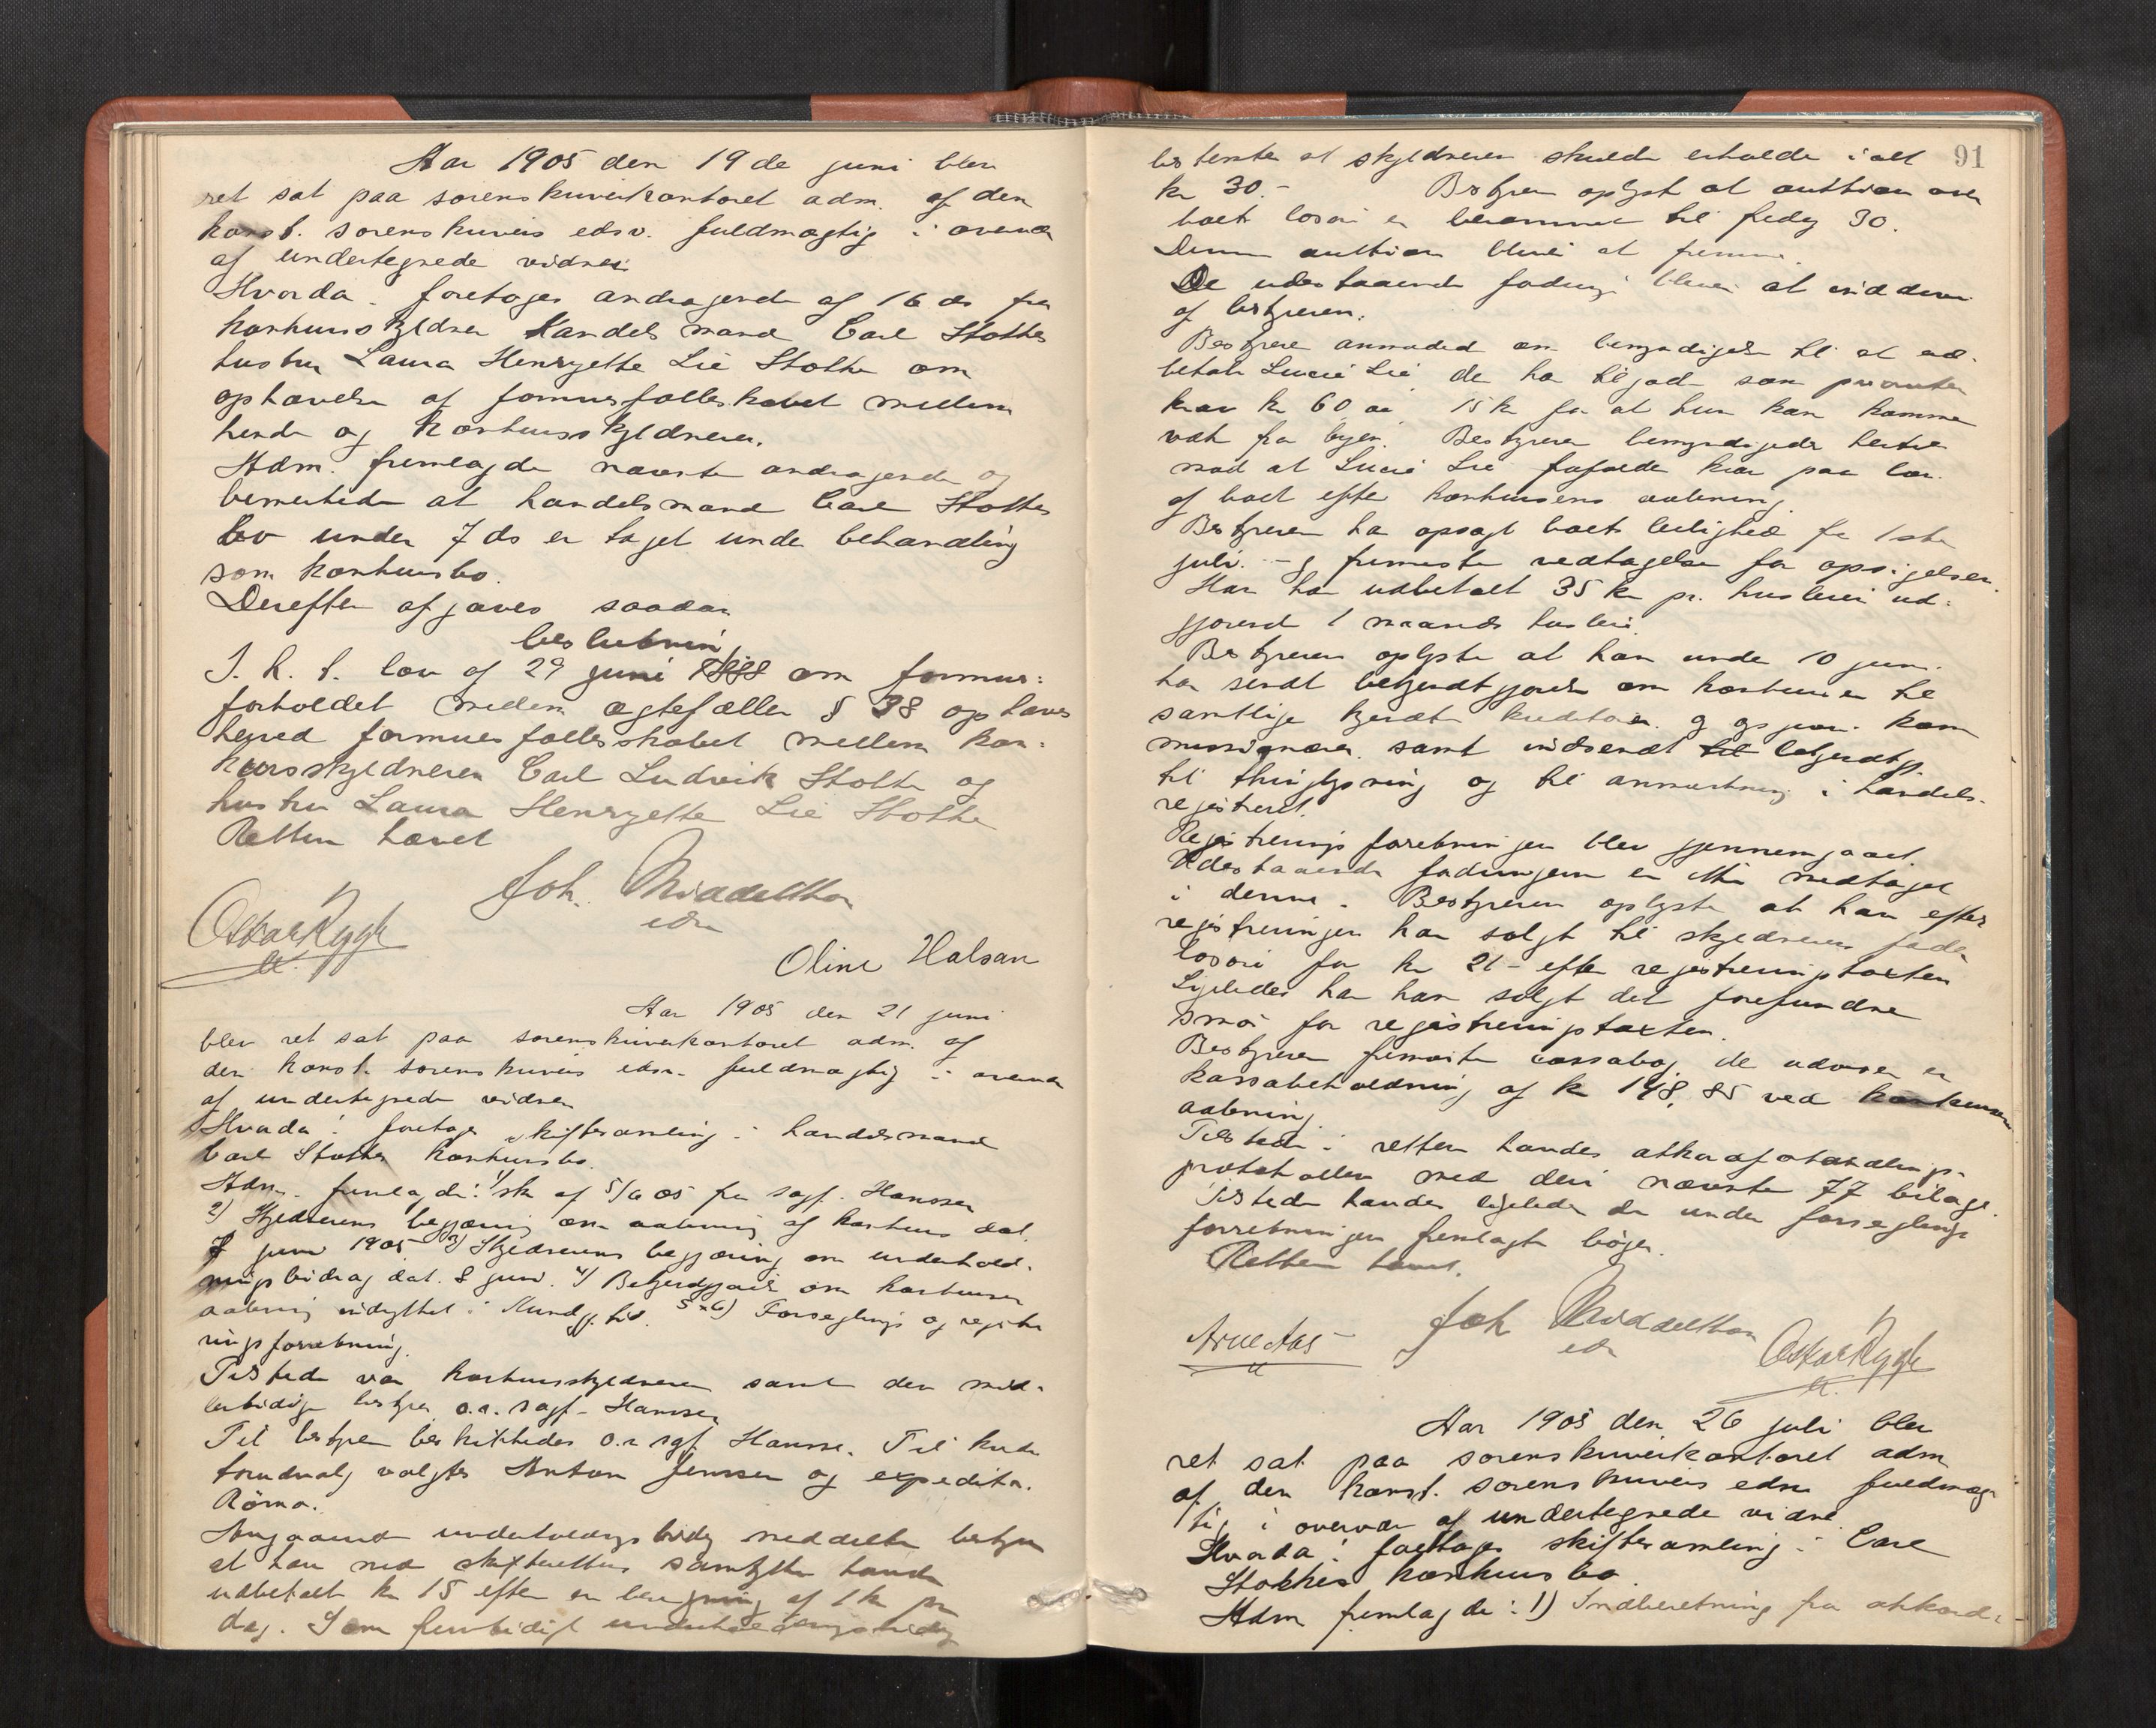 Aar 1905 den 19 de juni blev
ret sat paa sorenskriverkontoret adm. af den
konst. sorenskrivers edsv. fuldmægtig i overvær
af undertegnede vidner
Hvorda foretoges andragende af 16 ds fra
konkursskyldner Handelsmand Carl Stokkes
hustru Laura Henryette Lie Stokke om
ophævelse af formuesfællesskabet mellem
hende og konkursskyldneren.
Adm. fremlagde nævnte andragende og
bemerkede at handelsmand Carl Stokkes
bo under 7 ds er taget under behandling
som konkursbo.
Derefter afgaves saadan
beslutning
I. h. t. lov af 29 juni 1888 om formues-
forholdet mellem ægtefæller § 38 ophæves
herved formuesfællesskabet mellem kon-
kursskyldneren Carl Ludvik Stokke og
hustru Laura Henryette Lie Stokke
Retten hævet
Joh. Middelthon
edsv
Oskar Rygh
Oline Halsan
Aar 1905 den 21 juni
blev ret sat paa sorenskriverkontoret adm. af
den konst. sorenskrivers edsv. fuldmægtig i overvær
af undertegnede vidner
Hvorda: foretoges skiftesamling i handelsmand
Carl Stokkes konkursbo.
Adm. fremlagde: 1/ sk af 5/6 05 fra sagf. Hanssen
2) Skyldnerens begjæring om aabning af konkurs dat.
7 juni 1905 3) Skyldnerens begjæring om underhold-
ningsbidrag dat. 8 juni. 4) Bekjendtgjørelse om konkursens
aabning indrykket i Kundgj. tid. 5 & 6) Forseglings og registre
ringsforretning.
Tilstede var konkursskyldneren samt den mid-
lertidige bestyrer o.r. sagf. Hanssen
Til bestyrer beskikkedes o.r. sgf. Hanssen. Til kredi
torudvalg valgtes Anton Jenssen og expeditør
Røma.
Angaaende underholdningsbidrag meddelte bestyreren
at han med skifterettens samtykke havde
udbetalt kr 15 efter en beregning af 1 kr pr
dag. Som fremtidigt underholdningsbidrag
91
bestemtes at skyldneren skulde erholde i alt
kr 30.- Bestyreren oplyste at auktion over
boets løsøre er berammet til fredag 30.
Denne auktion bliver at fremme.
De udestaaende fordringer bliver at inddrive
af bestyreren.
Bestyreren anmodede om bemyndigelse til at ud-
betale Lucie Lie, der har tilgode som prioriteret
krav kr 60 og 15 kr for at hun kan komme
væk fra byen. Bestyreren bemyndigedes hertil
mod at Lucie Lie frafalder krav paa løn
af boet efter konkursens aabning.
Bestyreren har opsagt boets leilighed fra 1ste
juli og fremviste vedtagelse for opsigelsen.
Han har udbetalt 35 kr pr. husleie ud-
gjørende 1 maaneds husleie.
Bestyreren oplyste at han under 10 juni
har sendt bekjendtgjørelse om konkursen til
samtlige kjendte kreditorer og kom
missionærer samt indsendt til bekjendtgj.
til thinglysning og til anmerkning i handels-
registret.
Registreringsforretningen blev gjennemgaaet.
Udestaaende fordringer er ikke medtaget
i denne. Bestyreren oplyste at han efter
registreringen har solgt til skyldnerens fader
løsøre for kr 21- efter registreringstaxten
Ligeledes har han solgt det forefundne
smør for registreringstaxten.
Bestyreren fremviste cassabog, der udviser en
kassabeholdning af kr 148,85 ved konkursens
aabning.
Tilstede i retten havdes afkraafotarling-
protokollen med deri nævnte 77 bilage.
Tilstede havdes ligeledes de under forseglings
forretningen fremlagte bøger.
Retten hævet.
Joh Middelthon
edsv
Arne Aas
Oskar Rygh
Aar 1905 den 26 juli blev
ret sat paa sorenskriverkontoret adm
af den konst. sorenskrivers edsv fuldmæg
tig i overvær af undertegnede vidne
Hvorda: foretoges skiftesamling i Carl
Stokkes konkursbo
Adm fremlagde: 1) Indberetning fra akkord-